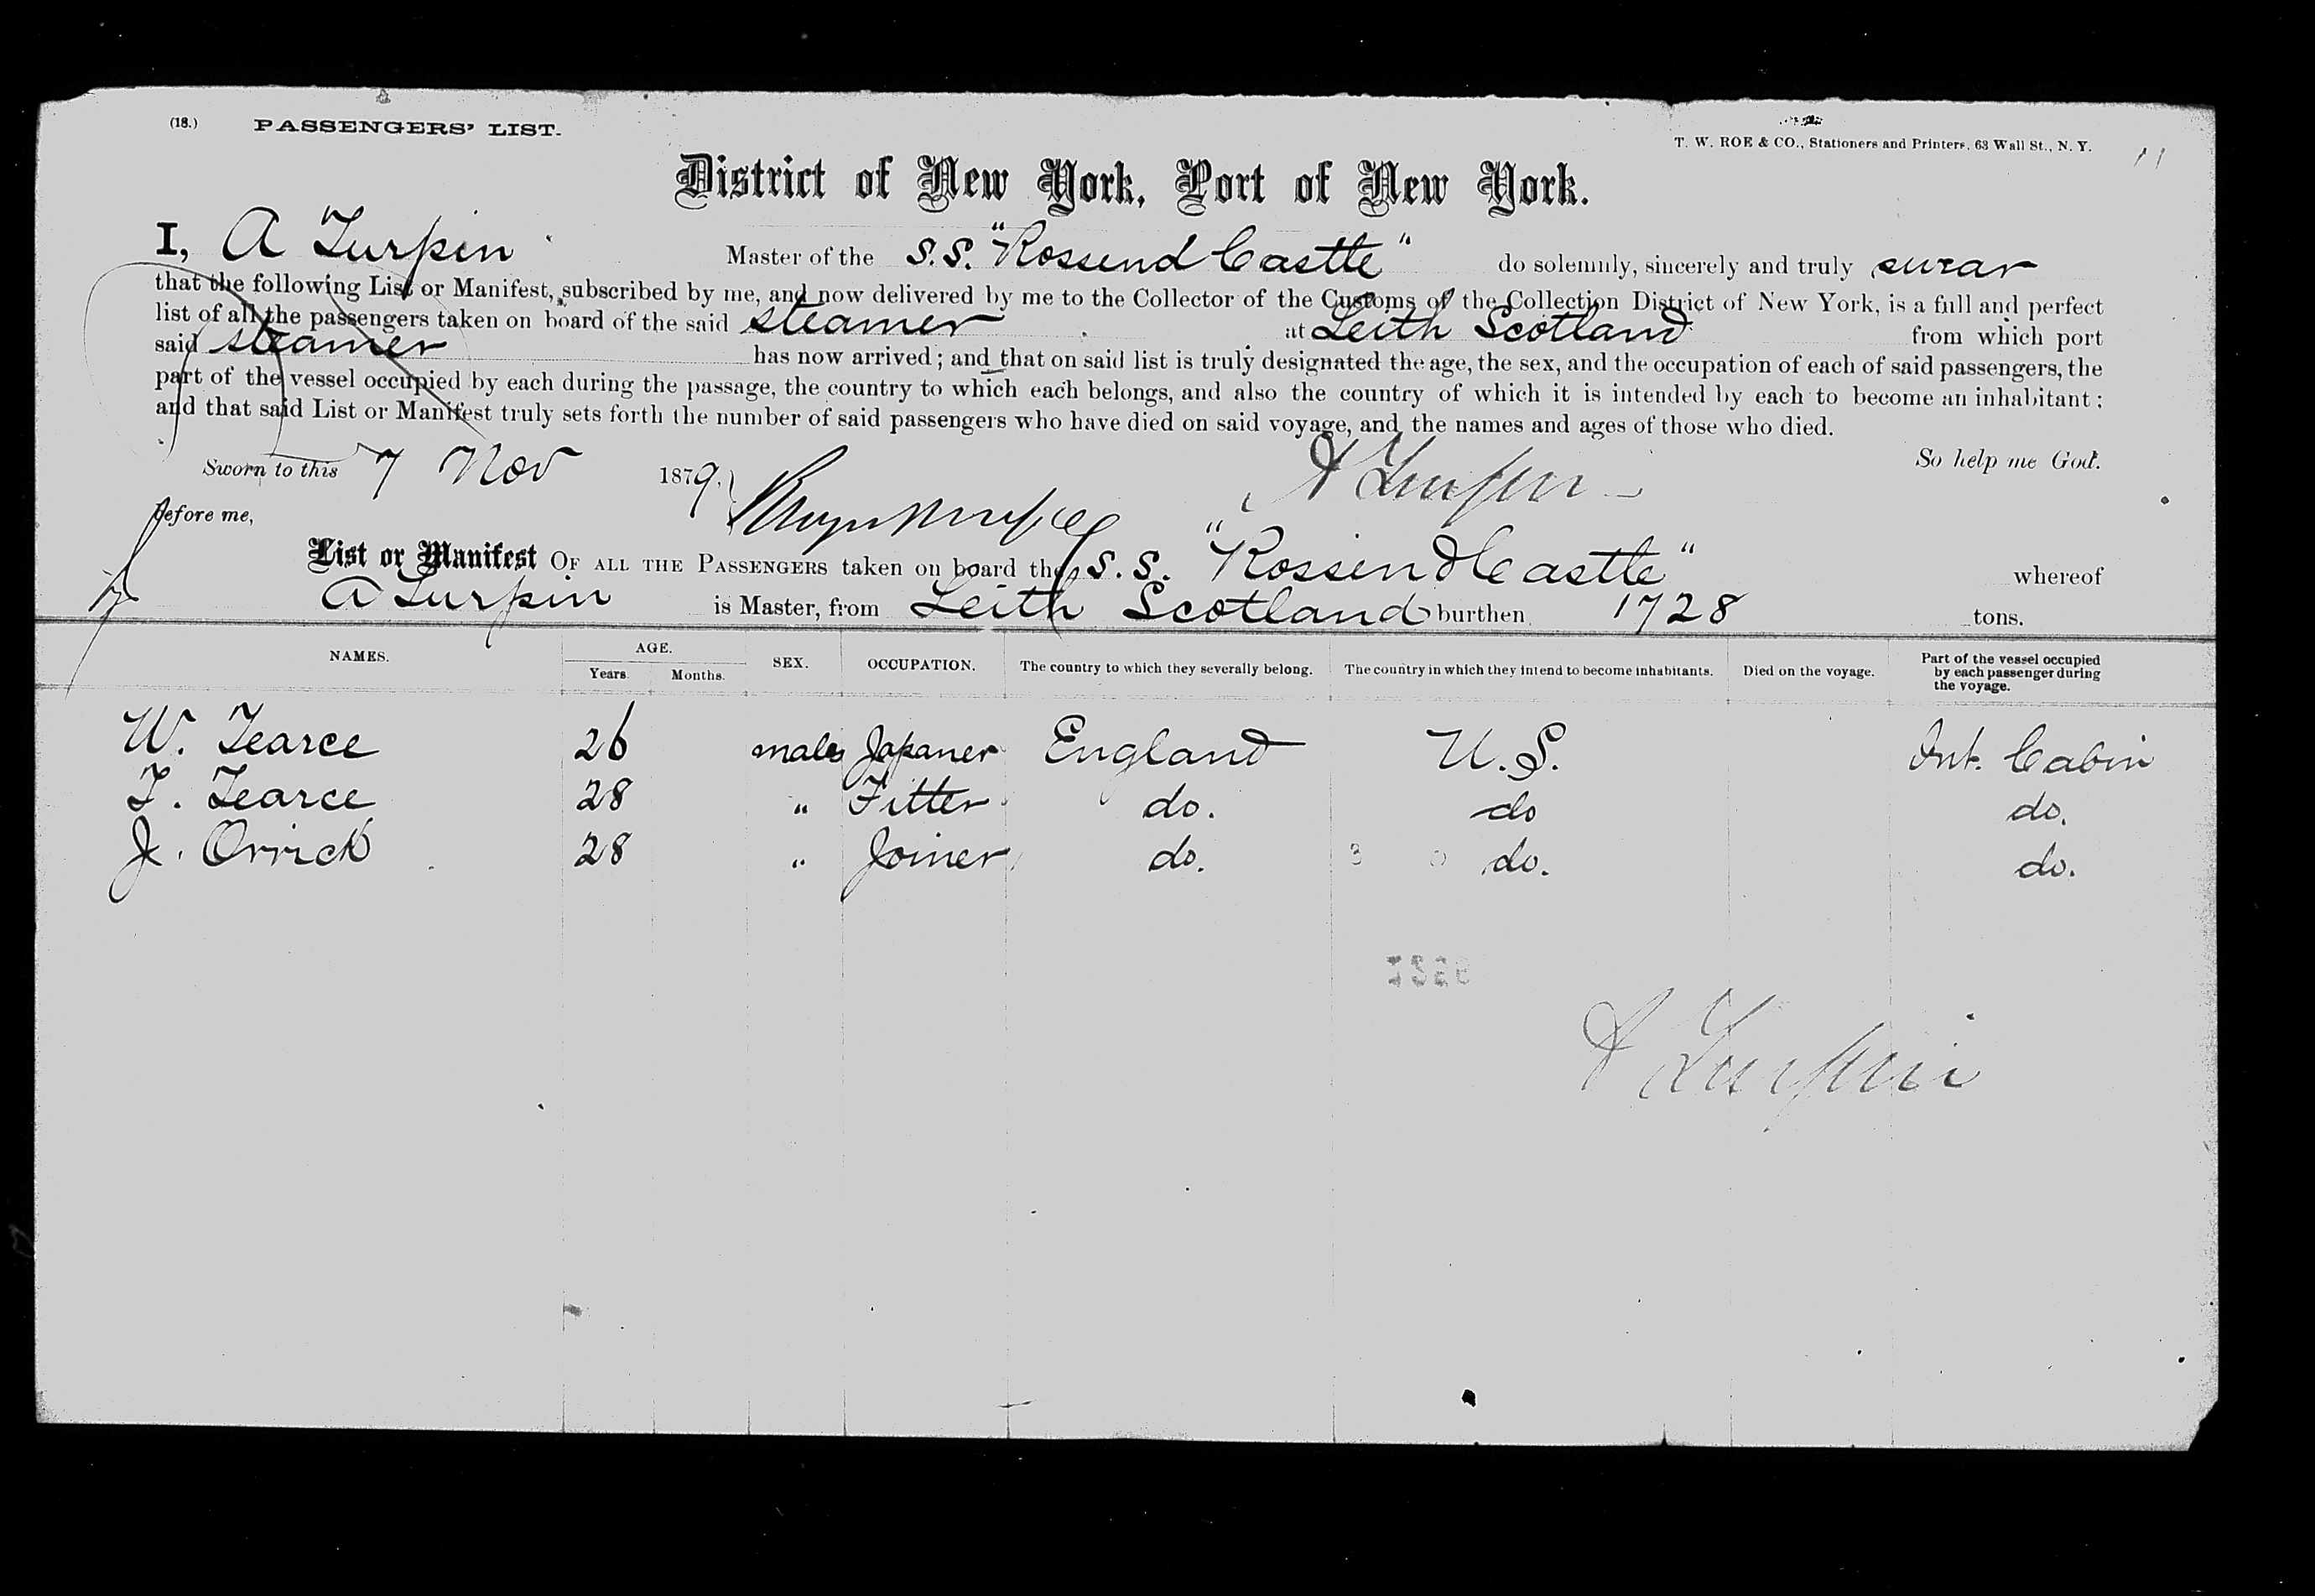 (18.) PASSENGERS' LIST.
T. W. ROE & CO., Stationers and Printers, 63 Wall St., N. Y.
11
District of New York, Port of New York.
I, A Turpin Master of the S.S. "Rossend Castle" do solemnly, sincerely and truly swear
that the following List or Manifest, subscribed by me, and now delivered by me to the Collector of the Customs of the Collection District of New York, is a full and perfect
list of all the passengers taken on board of the said steamer at Leith Scotland from which port
said steamer has now arrived; and that on said list is truly designated the age, the sex, and the occupation of each of said passengers, the
part of the vessel occupied by each during the passage, the country to which each belongs, and also the country of which it is intended by each to become an inhabitant;
and that said List or Manifest truly sets forth the number of said passengers who have died on said voyage, and the names and ages of those who died.
So help me God.
Sworn to this 7 Nov 1879.
A Turpin
before me,
List or Manifest OF ALL THE PASSENGERS taken on board the S.S. "Rossend Castle" whereof
A Turpin is Master, from Leith Scotland burthen 1728 tons.
NAMES. AGE. Years. Months. SEX. OCCUPATION. The country to which they severally belong. The country in which they intend to become inhabitants. Died on the voyage. Part of the vessel occupied by each passenger during the voyage.
W. Tearce 26 male Japaner England U.S. Int. Cabin
T. Tearce 28 " Fitter do. do do.
J. Orrick 28 " Joiner do. do. do.
A Turpin